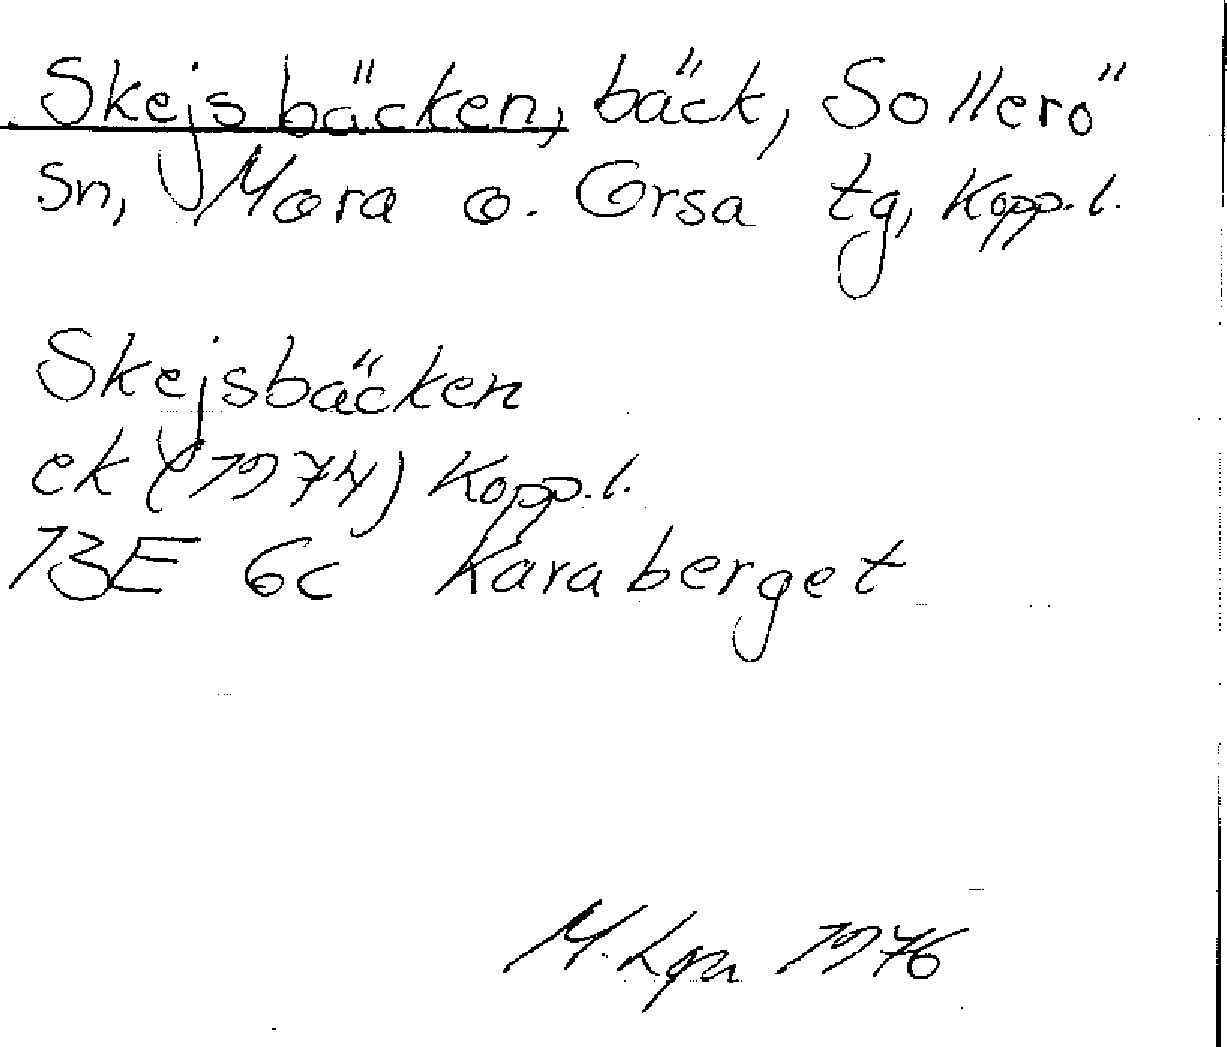 Skejsbäcken, bäck, Sollerö
sn, Mora o. Orsa tg, Kopp.l.
Skejsbäcken
ek (1974) Kopp.l.
13E 6c Karaberget
M. Lgn 1976